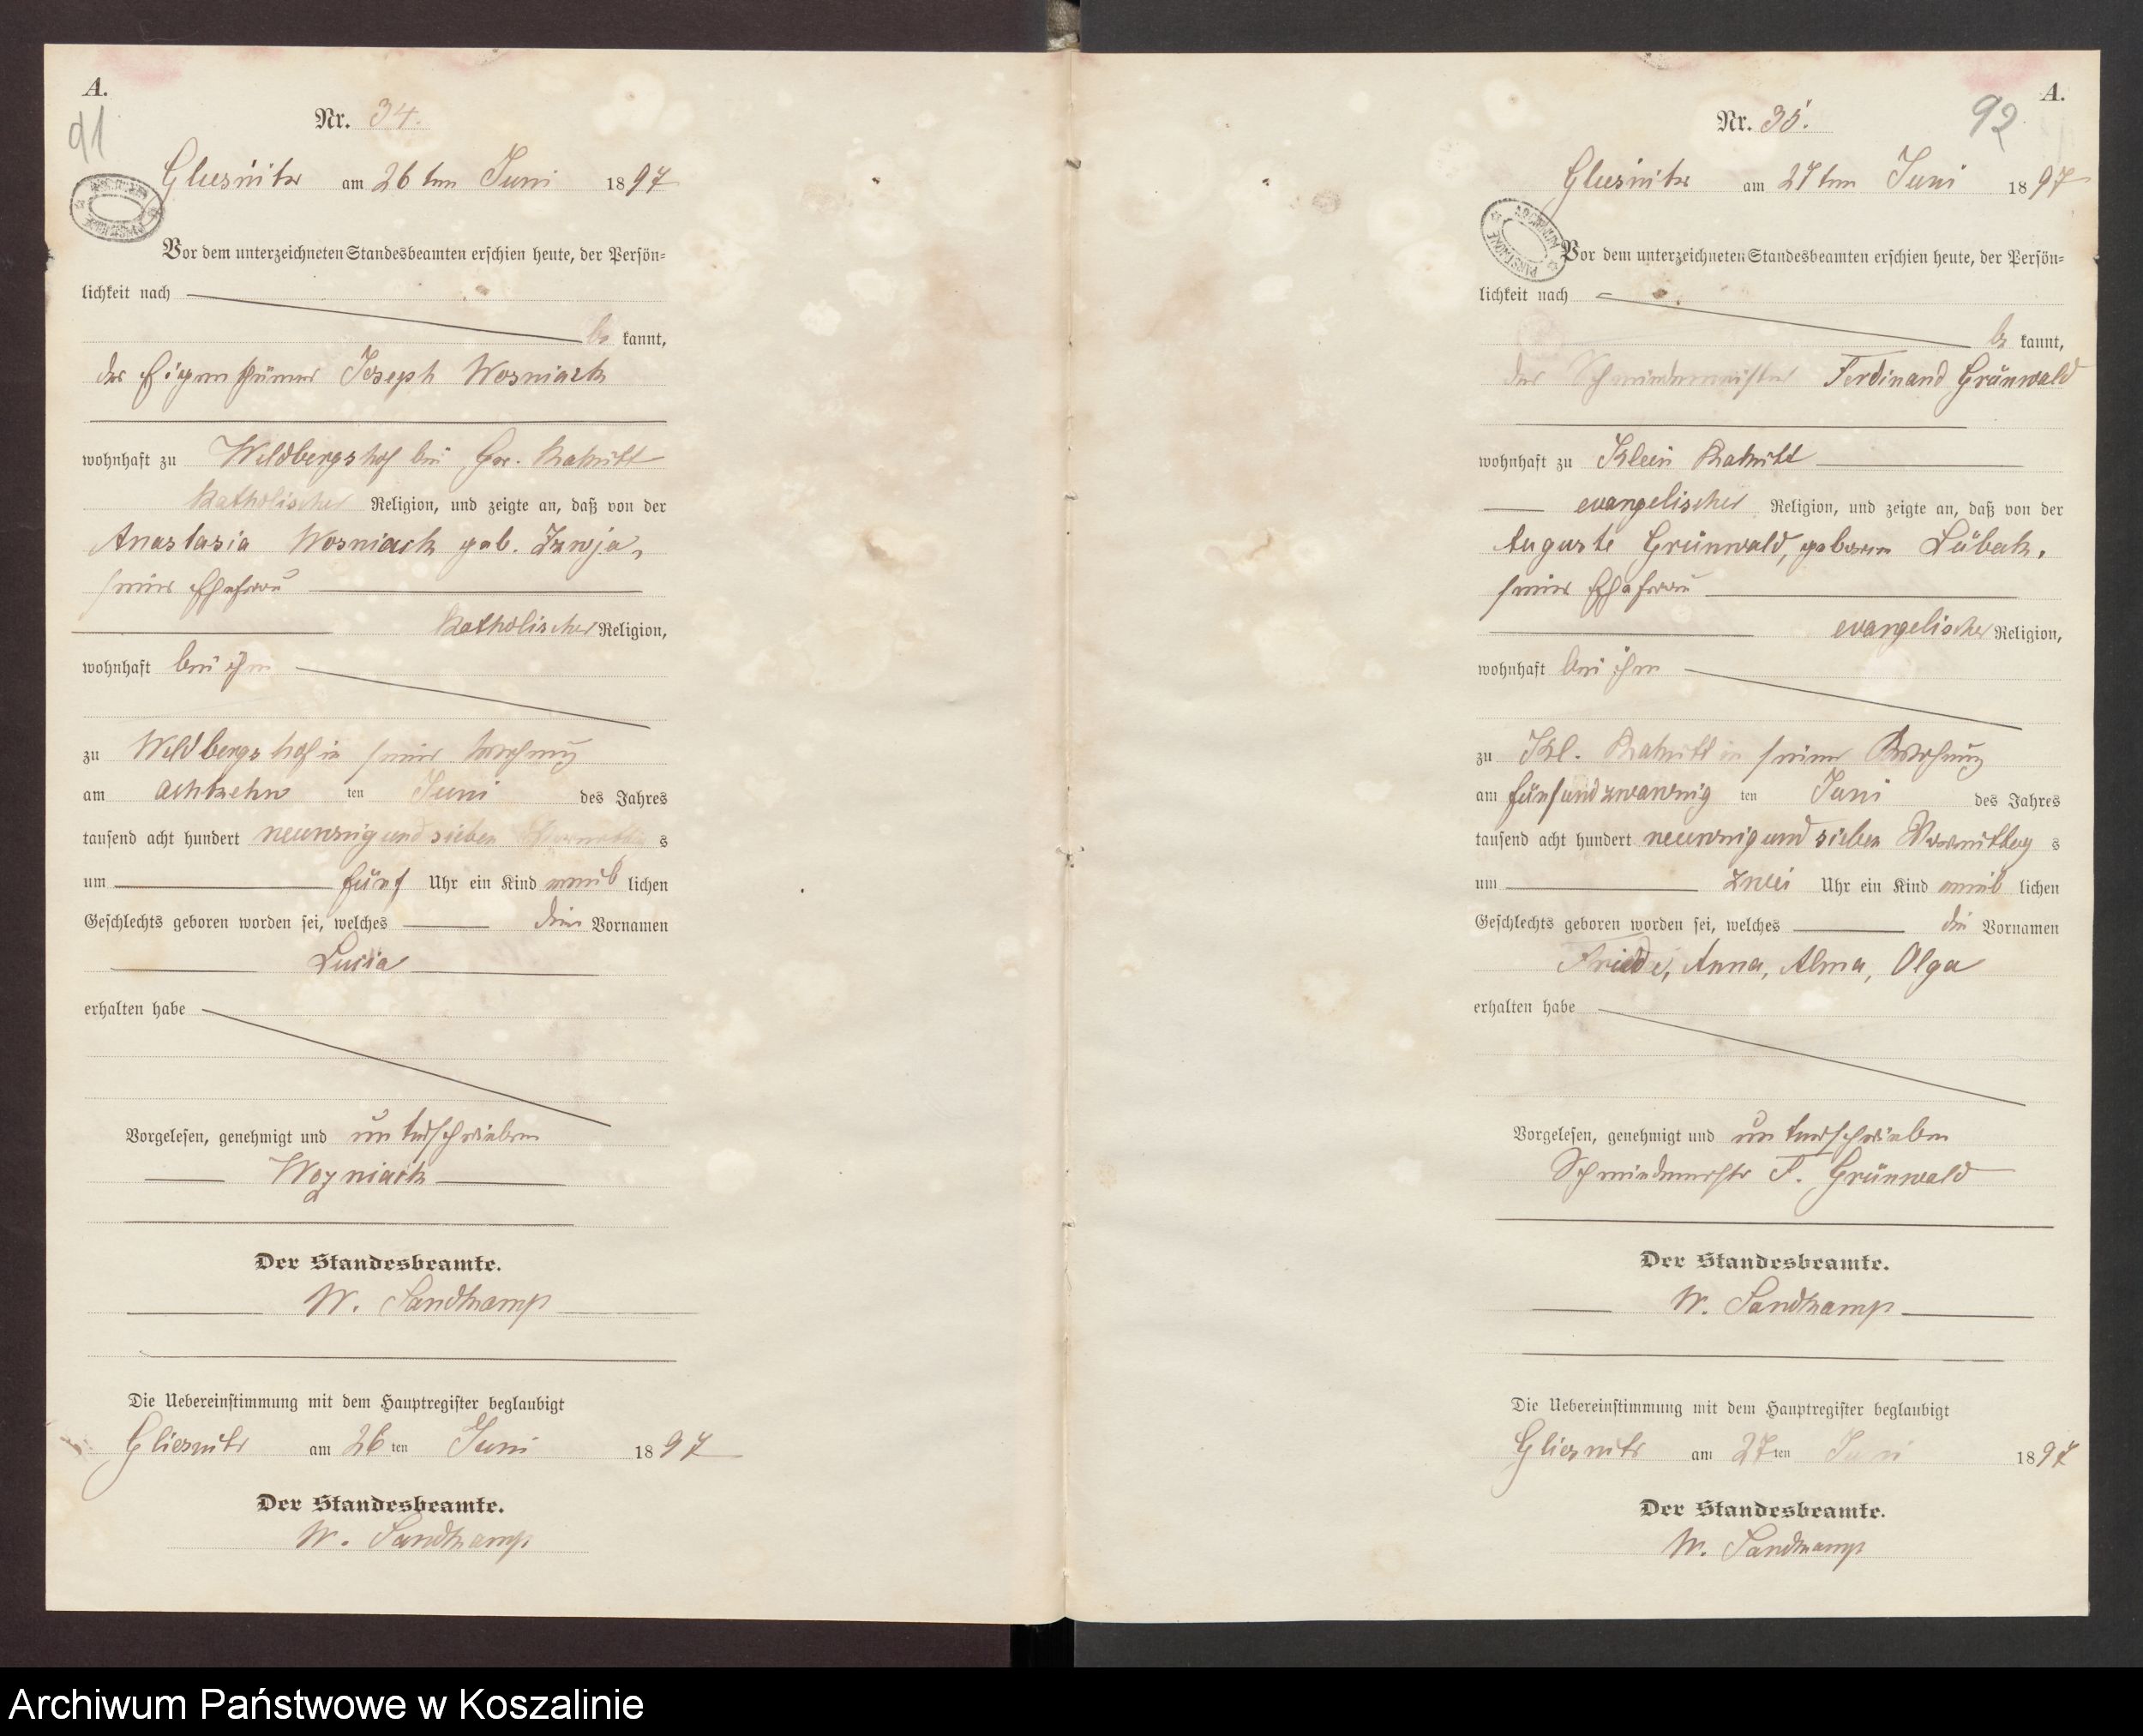 A.
91
Nr. 34.
Gliesnitz am 26ten Juni 1897
Vor dem unterzeichneten Standesbeamten erschien heute, der Persön-
lichkeit nach
be kannt,
der Eigenthümer Joseph Wosniack
wohnhaft zu Wildbergshof bei Gr. Rakitt
katholischer Religion, und zeigte an, daß von der
Anastasia Wosniack geb.
seiner Ehefrau
katholischer Religion,
wohnhaft bei ihm
zu Wildbergshof in seiner Wohnung
am achtzehn ten Juni des Jahres
tausend acht hundert neunzig und sieben s
um fünf Uhr ein Kind weib lichen
Geschlechts geboren worden sei, welches den Vornamen
erhalten habe
Vorgelesen, genehmigt und unterschrieben
Wozniack
Der Standesbeamte.
W. Sandkamp
Die Uebereinstimmung mit dem Hauptregister beglaubigt
Gliesnitz am 26ten Juni 1897
Der Standesbeamte.
W. Sandkamp
A.
92
Nr. 35.
Gliesnitz am 27ten Juni 1897
Vor dem unterzeichneten Standesbeamten erschien heute, der Persön-
lichkeit nach
be kannt,
der Schmiedemeister Ferdinand Grünwald
wohnhaft zu Klein Rakitt
evangelischer Religion, und zeigte an, daß von der
Auguste Grünwald, geboren Lübeck,
seiner Ehefrau
evangelischer Religion,
wohnhaft bei ihm
zu Kl. Rakitt in seiner Wohnung
am fünfundzwanzig ten Juni des Jahres
tausend acht hundert neunzig und sieben Vormittag s
um zwei Uhr ein Kind weib lichen
Geschlechts geboren worden sei, welches die Vornamen
Anna, Alma, Olga
erhalten habe
Vorgelesen, genehmigt und unterschrieben
Schmiedemeister F. Grünwald
Der Standesbeamte.
W. Sandkamp
Die Uebereinstimmung mit dem Hauptregister beglaubigt
Gliesnitz am 27ten Juni 1897
Der Standesbeamte.
W. Sandkamp
Archiwum Państwowe w Koszalinie